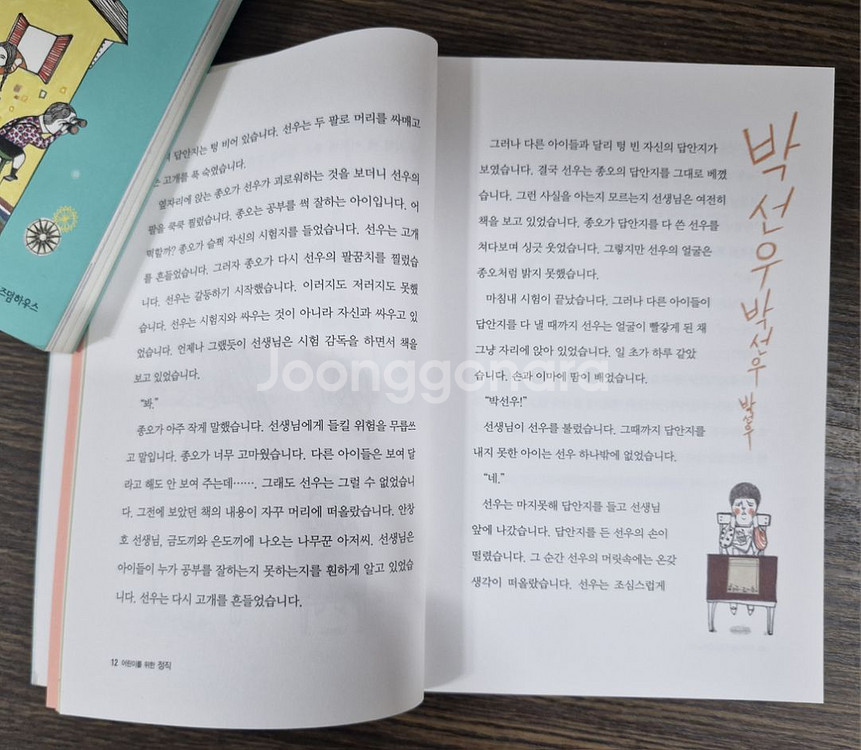 즈덤하우스
답안지는 텅 비어 있습니다. 선우는 두 팔로 머리를 싸매고
고개를 푹 숙였습니다.
옆자리에 앉는 종오가 선우가 괴로워하는 것을 보더니 선우의
팔을 쿡쿡 찔렀습니다. 종오는 공부를 썩 잘하는 아이입니다. 어
떡할까? 종오가 슬쩍 자신의 시험지를 들었습니다. 선우는 고개
를 흔들었습니다. 그러자 종오가 다시 선우의 팔꿈치를 찔렀습
니다. 선우는 갈등하기 시작했습니다. 이러지도 저러지도 못했
습니다. 선우는 시험지와 싸우는 것이 아니라 자신과 싸우고 있
었습니다. 언제나 그랬듯이 선생님은 시험 감독을 하면서 책을
보고 있었습니다.
“봐.”
종오가 아주 작게 말했습니다. 선생님에게 들킬 위험을 무릅쓰
고 말입니다. 종오가 너무 고마웠습니다. 다른 아이들은 보여 달
라고 해도 안 보여 주는데……. 그래도 선우는 그럴 수 없었습니
다. 그전에 보았던 책의 내용이 자꾸 머리에 떠올랐습니다. 안창
호 선생님, 금도끼와 은도끼에 나오는 나무꾼 아저씨. 선생님은
아이들이 누가 공부를 잘하는지 못하는지를 훤하게 알고 있었습
니다. 선우는 다시 고개를 흔들었습니다.
12 어린이를 위한 정직
그러나 다른 아이들과 달리 텅 빈 자신의 답안지가
보였습니다. 결국 선우는 종오의 답안지를 그대로 베꼈
습니다. 그런 사실을 아는지 모르는지 선생님은 여전히
책을 보고 있었습니다. 종오가 답안지를 다 쓴 선우를
쳐다보며 싱긋 웃었습니다. 그렇지만 선우의 얼굴은
종오처럼 밝지 못했습니다.
마침내 시험이 끝났습니다. 그러나 다른 아이들이
답안지를 다 낼 때까지 선우는 얼굴이 빨갛게 된 채
그냥 자리에 앉아 있었습니다. 일 초가 하루 같았
습니다. 손과 이마에 땀이 배었습니다.
“박선우!”
선생님이 선우를 불렀습니다. 그때까지 답안지를
내지 못한 아이는 선우 하나밖에 없었습니다.
“네.”
선우는 마지못해 답안지를 들고 선생님
앞에 나갔습니다. 답안지를 든 선우의 손이
떨렸습니다. 그 순간 선우의 머릿속에는 온갖
생각이 떠올랐습니다. 선우는 조심스럽게
박선우박선우박선우
Joonggonara